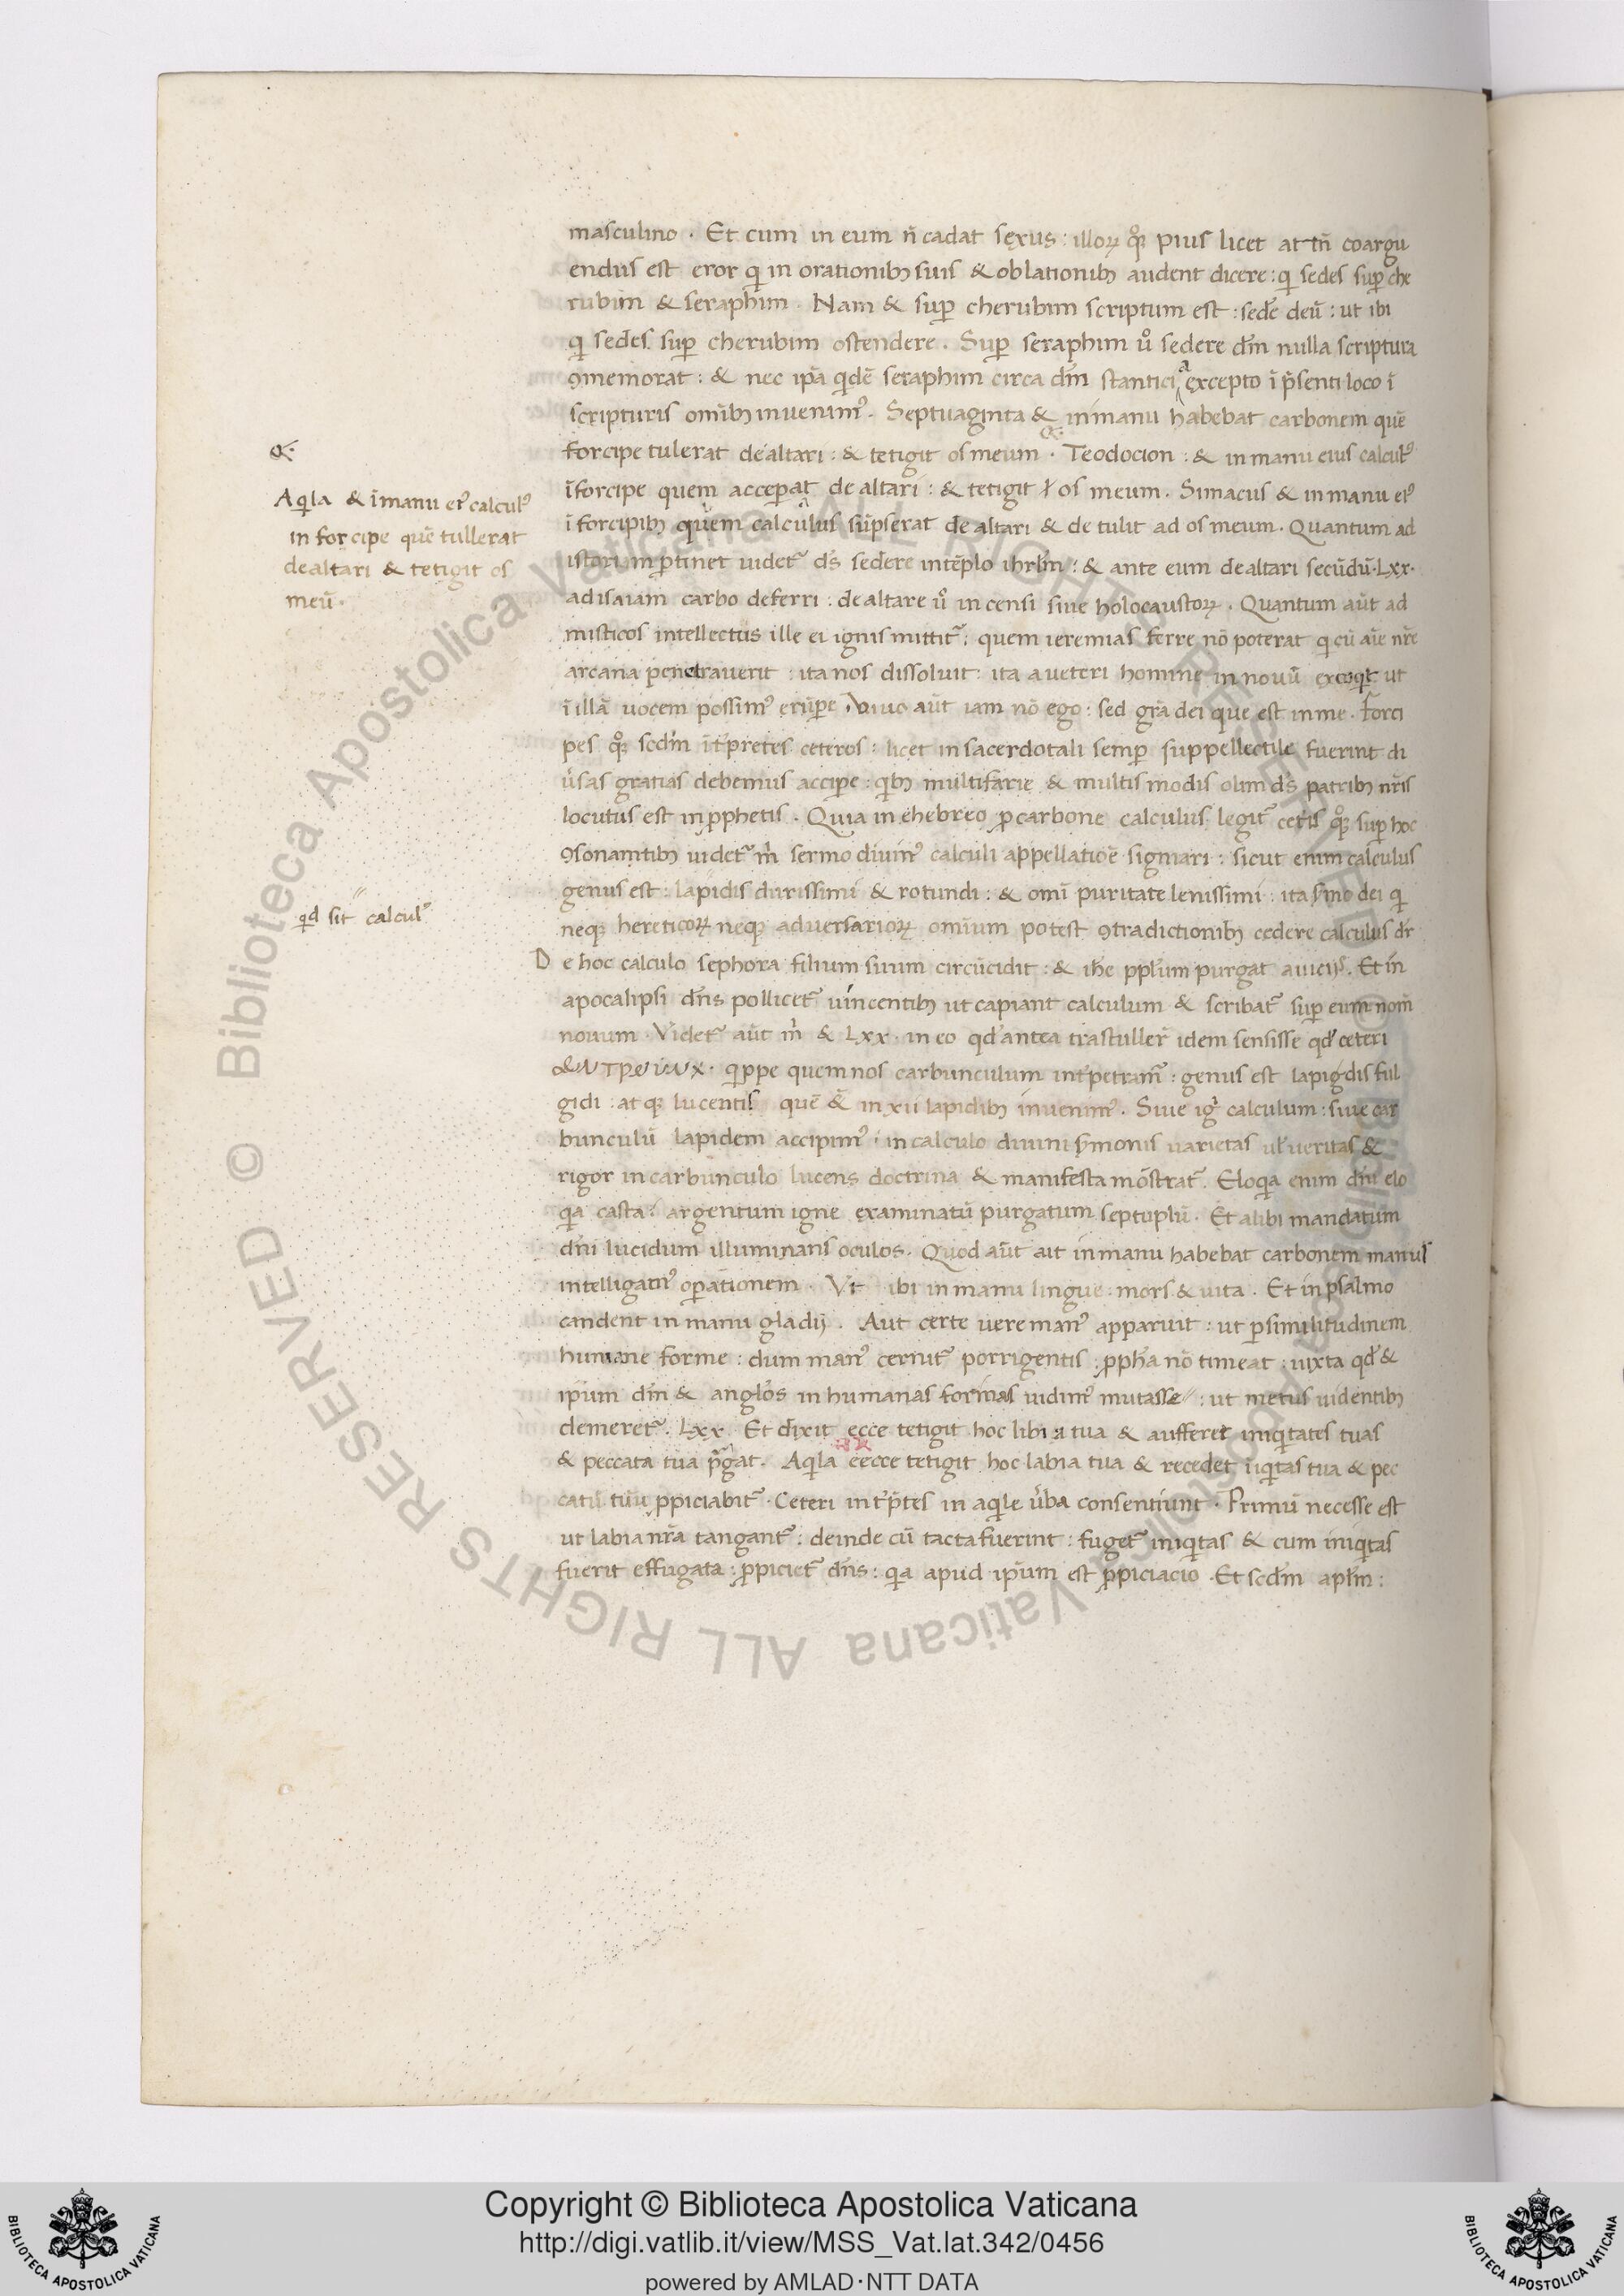 masculino . Et cum in eum n̄ cadat sexus : illoꝝ qͦꝫ pius licet at tn̄ coargu
endus est eror qi in orationibꝫ suis & oblationibꝫ audent dicere : qi sedes suꝑ che
rubim & seraphim . Nam & suꝑ cherubim scriptum est : sedē deū : ut ibi
qi sedes suꝑ cherubim ostendere . Suꝑ seraphim uͦ sedere dn̄m nulla scriptura
ꝯmemorat : & nec ip̄a qidē seraphim circa dn̄m stantici a excepto ī p̄senti loco ī
scripturis omībꝫ invenimꝰ . Septuaginta & in manu habebat carbonem quē
forcipe tulerat de altari : & tetigit os meum . Teodocion : & in manu eius calculꝰ
ī forcipe quem acceꝑat de altari : & tetigit os meum . Simacus & in manu eiꝰ
ī forcipibꝫ quem calculus sūpserat de altari & de tulit ad os meum . Quantum ad
istoriam ꝑtinet uidetᷣ ds̄ sedere in tēplo ihrl̄m : & ante eum de altari secūdū . Lxx .
ad isaiam carbo deferri : de altare uͦ in censi siue holocaustoꝝ . Quantum aūt ad
misticos intellectus ille ei ignis mittitᷣ : quem ieremias ferre nō poterat qi cū aīe nr̄e
arcana penetrauerit : ita nos dissoluit : ita a ueteri homine in nouū excoqit ut
ī illā uocem possimꝰ erūꝑe . Viuo aūt iam nō ego : sed grā dei que est in me . Forci
pes qͦꝫ scdm̄ īt̄pretes ceteros : licet in sacerdotali semꝑ suppellectile fuerint di
ūsas gratias debemus acciꝑe : qibꝫ multifarie & multis modis olim ds̄ patribꝫ nr̄is
locutus est in ꝓphetis . Quia in ehebreo ꝓ carbone calculus legitᷣ cet̄is qͦꝫ suꝑ hoc
ꝯsonamtibꝫ uidetᷣ m̄ sermo diuinꝰ calculi appellatioē signari : sicut enim calculus
genus est : lapidis durissimi & rotundi : & omī puritate lenissimi : ita s̄mo dei qi
neqꝫ hereticoꝝ neqꝫ adversarioꝝ omium potest ꝯtradictionibꝫ cedere calculus dr̄
D e hoc calculo sephora filium suum circūcidit : & ihe ppl̄um purgat a uicijs . Et in
apocalipsi dn̄s pollicetᷣ uincentibꝫ ut capiant calculum & scribatᷣ suꝑ eum nom̄
nouum . Videtᷣ aūt m̄ & Lxx . in eo qd̄ antea trastuller̄ idem sensisse qd̄ ceteri
qippe quem nos carbunculum int̄petramᷣ : genus est lapigdis ful
gidi : at qꝫ lucentis quē & in xii lapidibꝫ invenimꝰ . Siue igᷣ calculum : siue car
bunculū lapidem accipimꝰ : in calculo diuini s̄monis uarietas ul̄ ueritas &
rigor in carbunculo lucens doctrina & manifesta mōstratᷣ . Eloqia enim dn̄i elo
qia casta : argentum igne examinatū purgatum septuplū . Et alibi mandatum
dn̄i lucidum illuminans oculos . Quod aūt ait in manu habebat carbonem manus
intelligamꝰ oꝑationem . Vt ibi in manu lingue : mors & uita . Et in psalmo
candent in manu gladij . Aut certe uere manꝰ apparuit : ut ꝑ similitudinem
humane forme : dum manꝰ cernitᷣ porrigentis : ꝓph̄a nō timeat : iuxta qd̄ &
ip̄um dn̄m & angl̄os in humanas formas uidimꝰ mutasse : ut metus uidentibꝫ
demeretᷣ . Lxx . Et dixit ecce tetigit hoc libia tua & aufferet iniqitates tuas
& peccata tua p̄gat . Aqila eecce tetigit hoc labia tua & recedet iīqitas tua & pec
catū tuū ꝓpiciabitᷣ . Ceteri int̄p̄tes in aqile ūba consentiunt . Primū necesse est
ut labia nr̄a tangantᷣ : deinde cū tacta fuerint : fugetᷣ iniqitas & cum iniqitas
fuerit effugata : ꝓpicietᷣ dn̄s : qia apud ip̄um est ꝓpiciacio . Et scdm̄ apl̄m :
Aqila & ī manu eiꝰ calculꝰ
in forcipe quē tullerat
de altari & tetigit os
meū .
qid sit calculꝰ
© Biblioteca Apostolica Vaticana ALL RIGHTS RESERVED
© Biblioteca Apostolica Vaticana ALL RIGHTS RESERVED
Copyright © Biblioteca Apostolica Vaticana
http://digi.vatlib.it/view/MSS_Vat.lat.342/0456
powered by AMLAD·NTT DATA
BIBLIOTECA APOSTOLICA VATICANA
BIBLIOTECA APOSTOLICA VATICANA